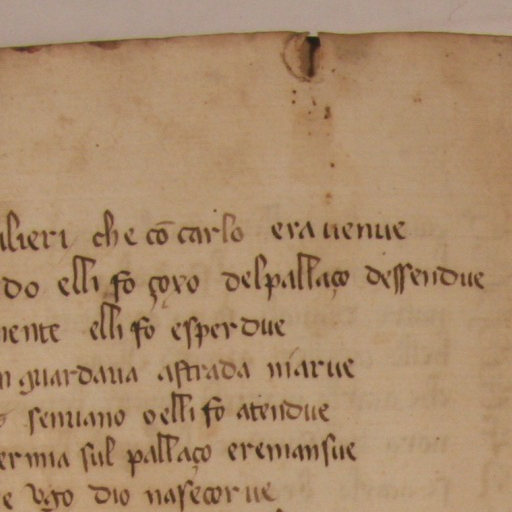 alieri che cõ carlo era uenue
do elli fo çoxo del pallaço dessendue
mente elli fo esperdue
n guardaua astrada marue
senuano o elli fo atendue
ermia sul pallaço eremansue
e vgo dio nasecorue